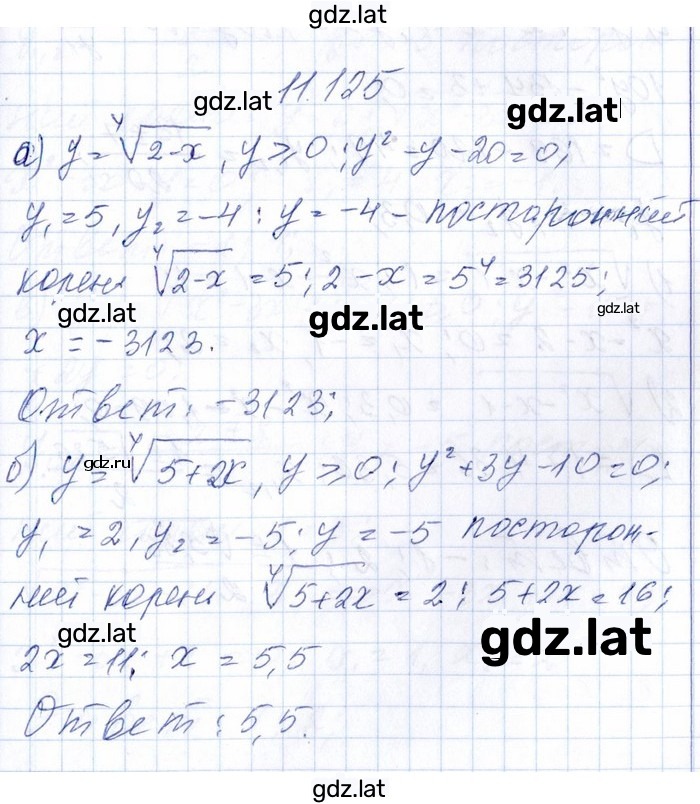 gdz.lat
11.125
gdz.lat
gdz.lat
а) y = ⁴√2-x, y ⩾ 0; y² - y - 20 = 0;
y₁ = 5, y₂ = -4: y = -4 - посторонний
корень ⁴√2-x = 5; 2 - x = 5⁴ = 3125;
gdz.lat
gdz.lat
gdz.lat
x = -3123.
Ответ: -3123;
б) y = ⁴√5+2x, y ⩾ 0; y² + 3y - 10 = 0;
gdz.ru
y₁ = 2, y₂ = -5; y = -5 посторон-
ний корень ⁴√5+2x = 2; 5+2x = 16;
gdz.lat
gdz.lat
2x = 11; x = 5,5
Ответ: 5,5.
gdz.lat